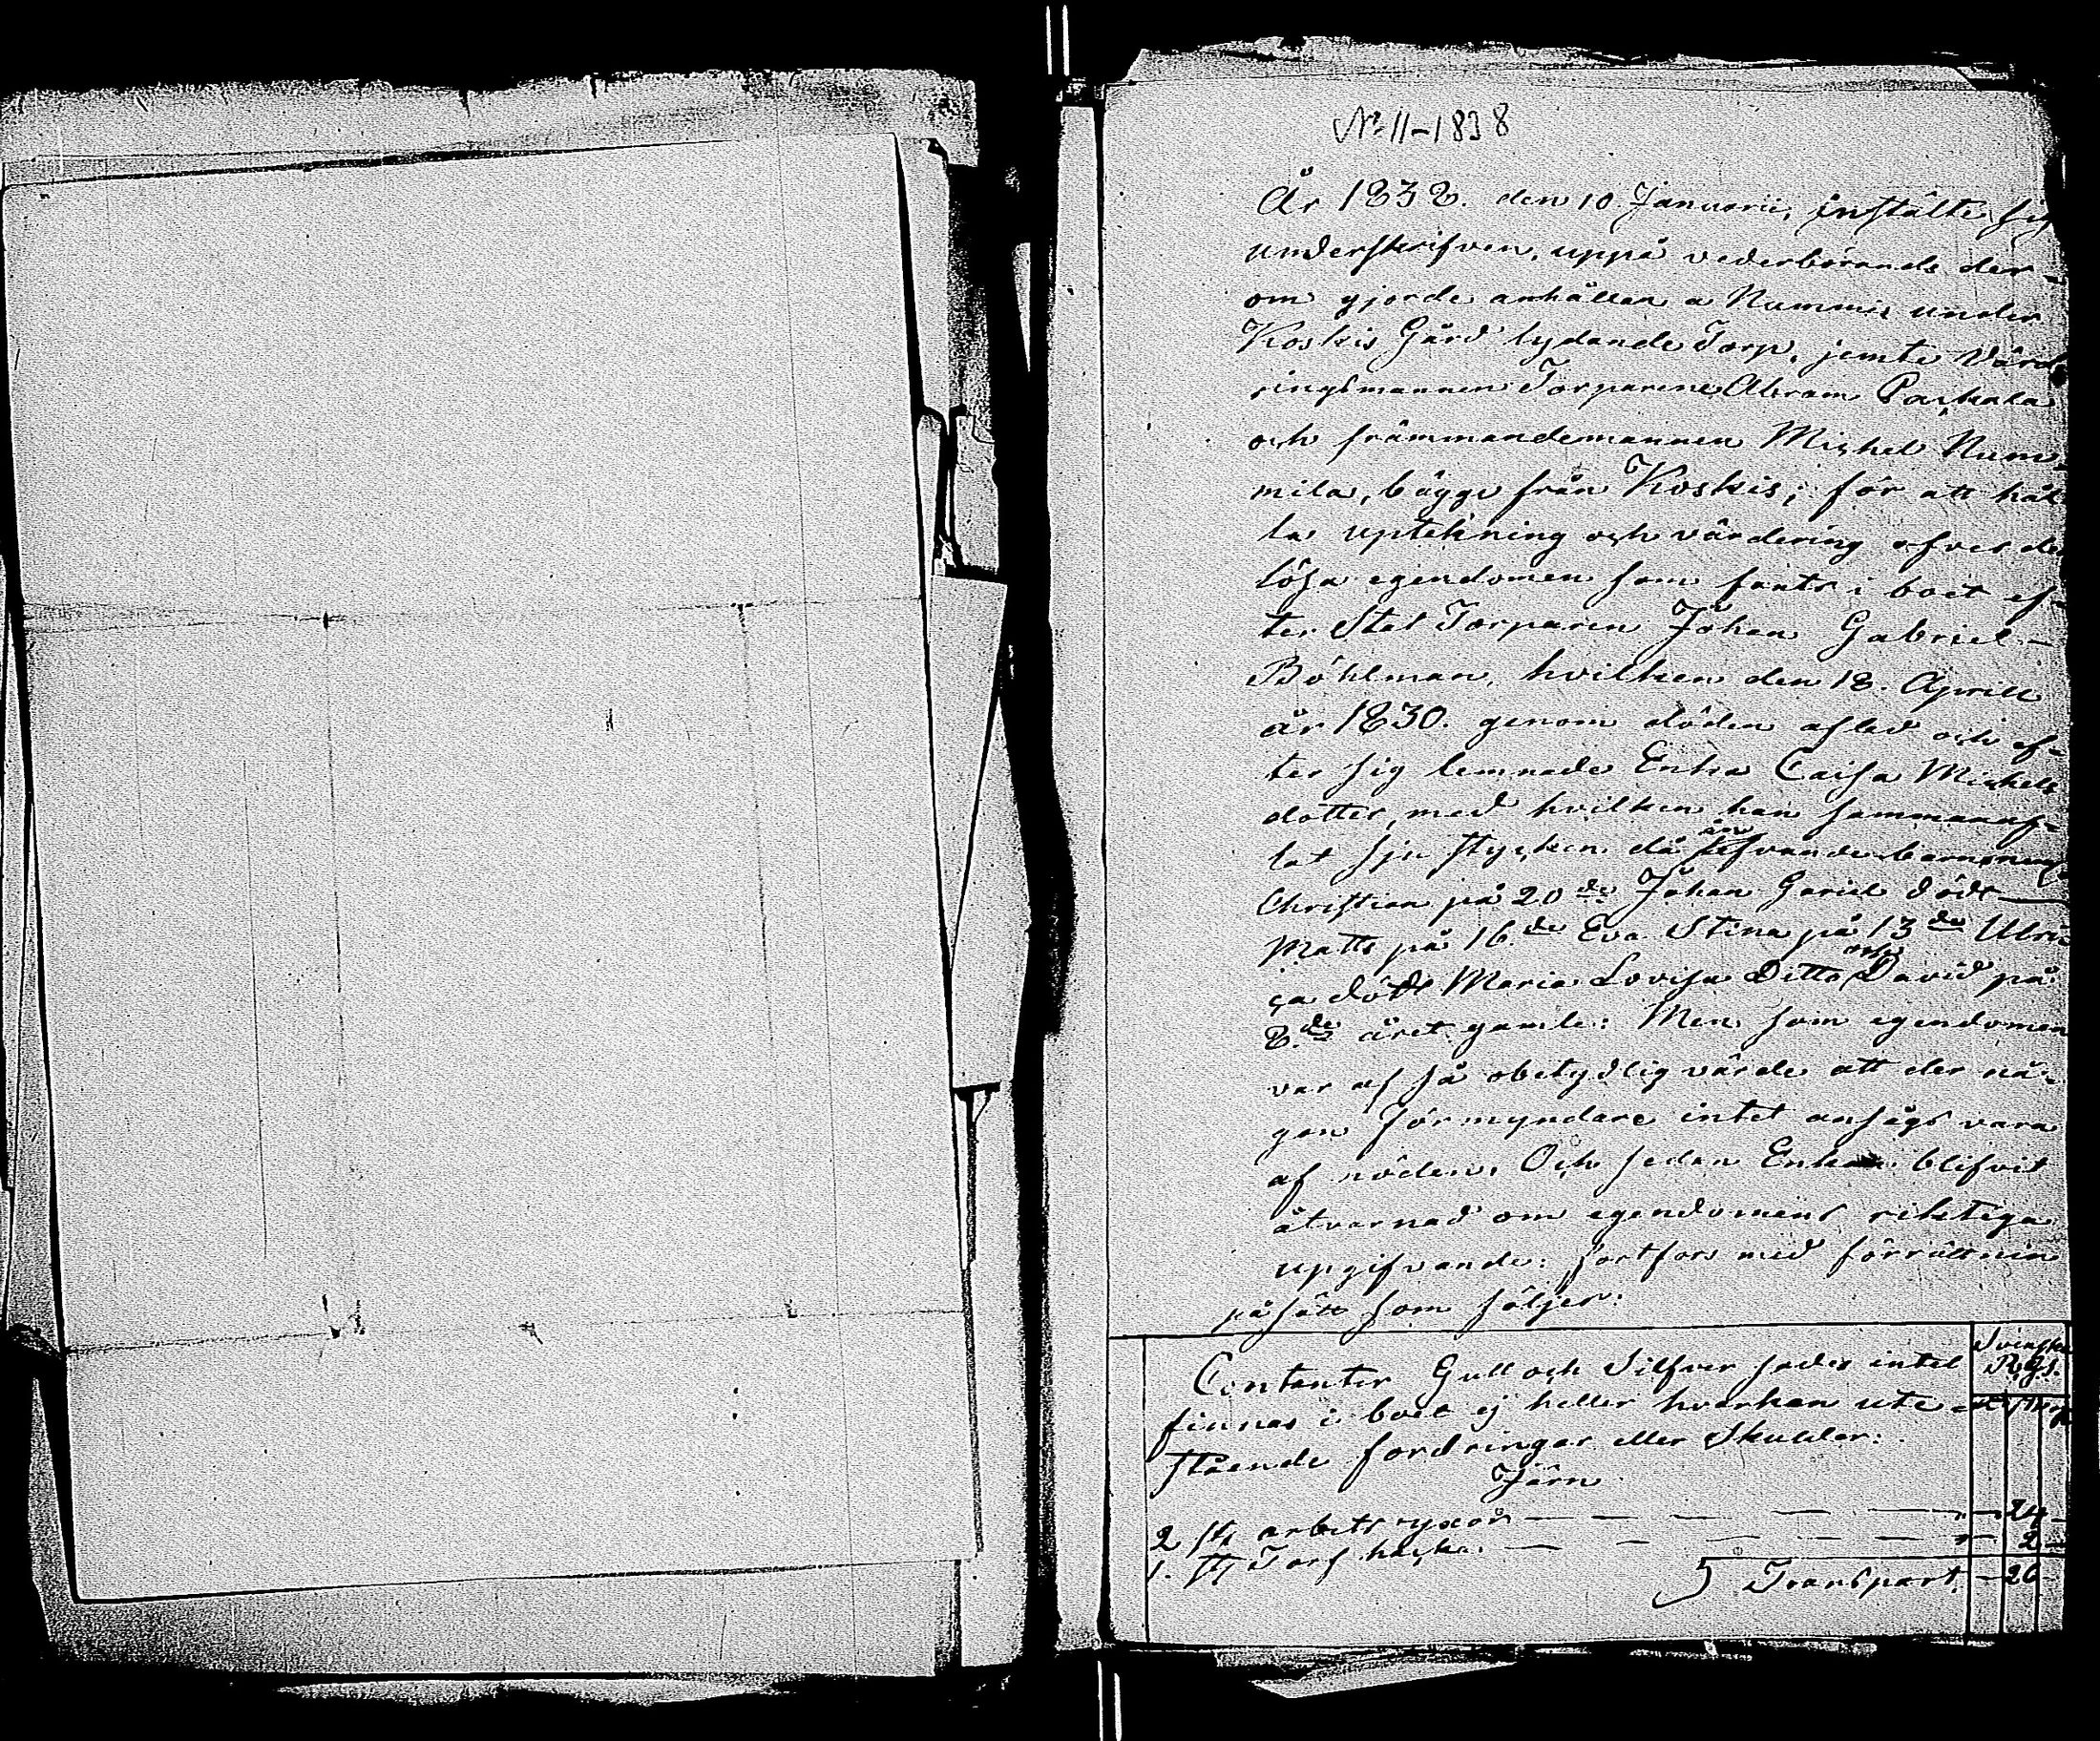 No 11-1838
År 1838. den 10 Januarii, instälte sig
underskrifven, uppå vederbörande der-
om gjorde anhållan a Nummis under
Koskis Gård lydande Torp, jemte Värde
ringsmannen Torparene Abram Paskala
och främmandemannen Michel Num
mila, bägge från Koskis; för att hål
la uptekning och värdering öfver de
lösa egendomen som fants i boet ef-
ter Stat Torparen Johan Gabriel
Böhlman, hvilken den 18. Aprill
år 1830. genom döden afled och ef-
ter sig lemnade Enka Caisa Michels
dotter, med hvilken han sammanaf-
lat sju stycken då än lefvande barn
Christian på 20de Johan Gariel död
Matts på 16.de Eva Stina på 13de Ulri
ca död Maria Lovisa Ditto och David på
8.de året gamle: Men som egendomen
var af så obetydlig värde att der nå-
gon förmyndare intet ansågs vara
af nöden. Och sedan Enkan blifvit
åtvarnad om egendomens riktiga
upgifvande: fortfors med förrättnin
på sätt som följer:
Contanter Gull och Silfver sades intet
finnas i boet ej heller hvarken ute
stående fordringar eller Skulder:
Svenska
R.Gs.
Järn
2 st arbets yxor — — — — 24
1. st Torf hacka — — — — 2
Transport — 26